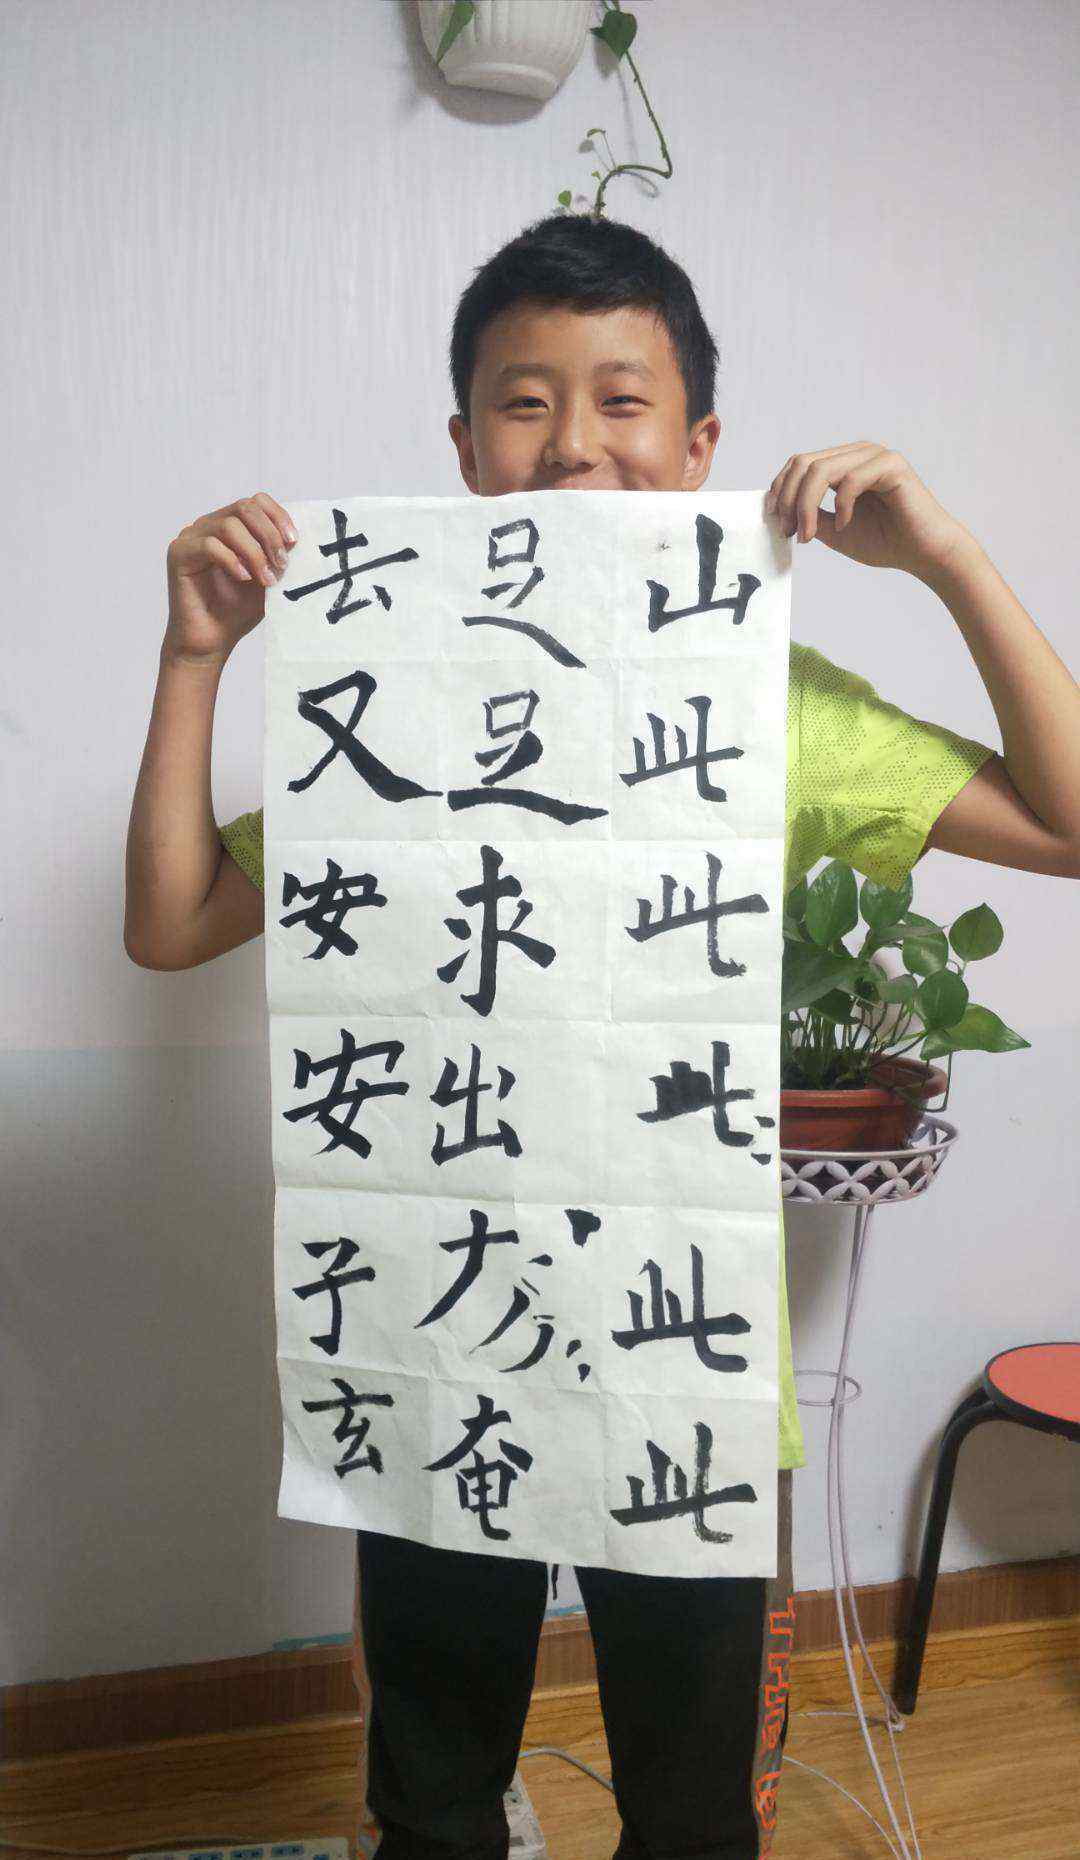 山此此此此此
足足求出大奄
去又安安子玄